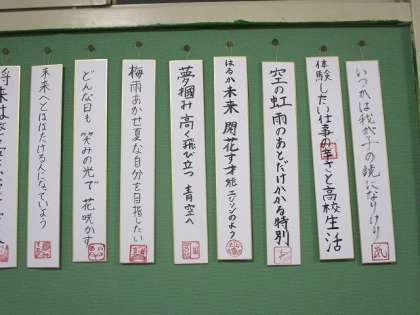 いつかは我が子の鏡になりけり
体験したい仕事の辛さと高校生活
空の虹雨のあとだけかかる特別
はるか未来 開花す才能エジソンのよう
夢掴み 高く飛び立つ 青空へ
梅雨あかせ夏な自分を目指したい
どんな日も 笑みの光で 花咲かす
未来へとはばたける人になっていよう
将来は